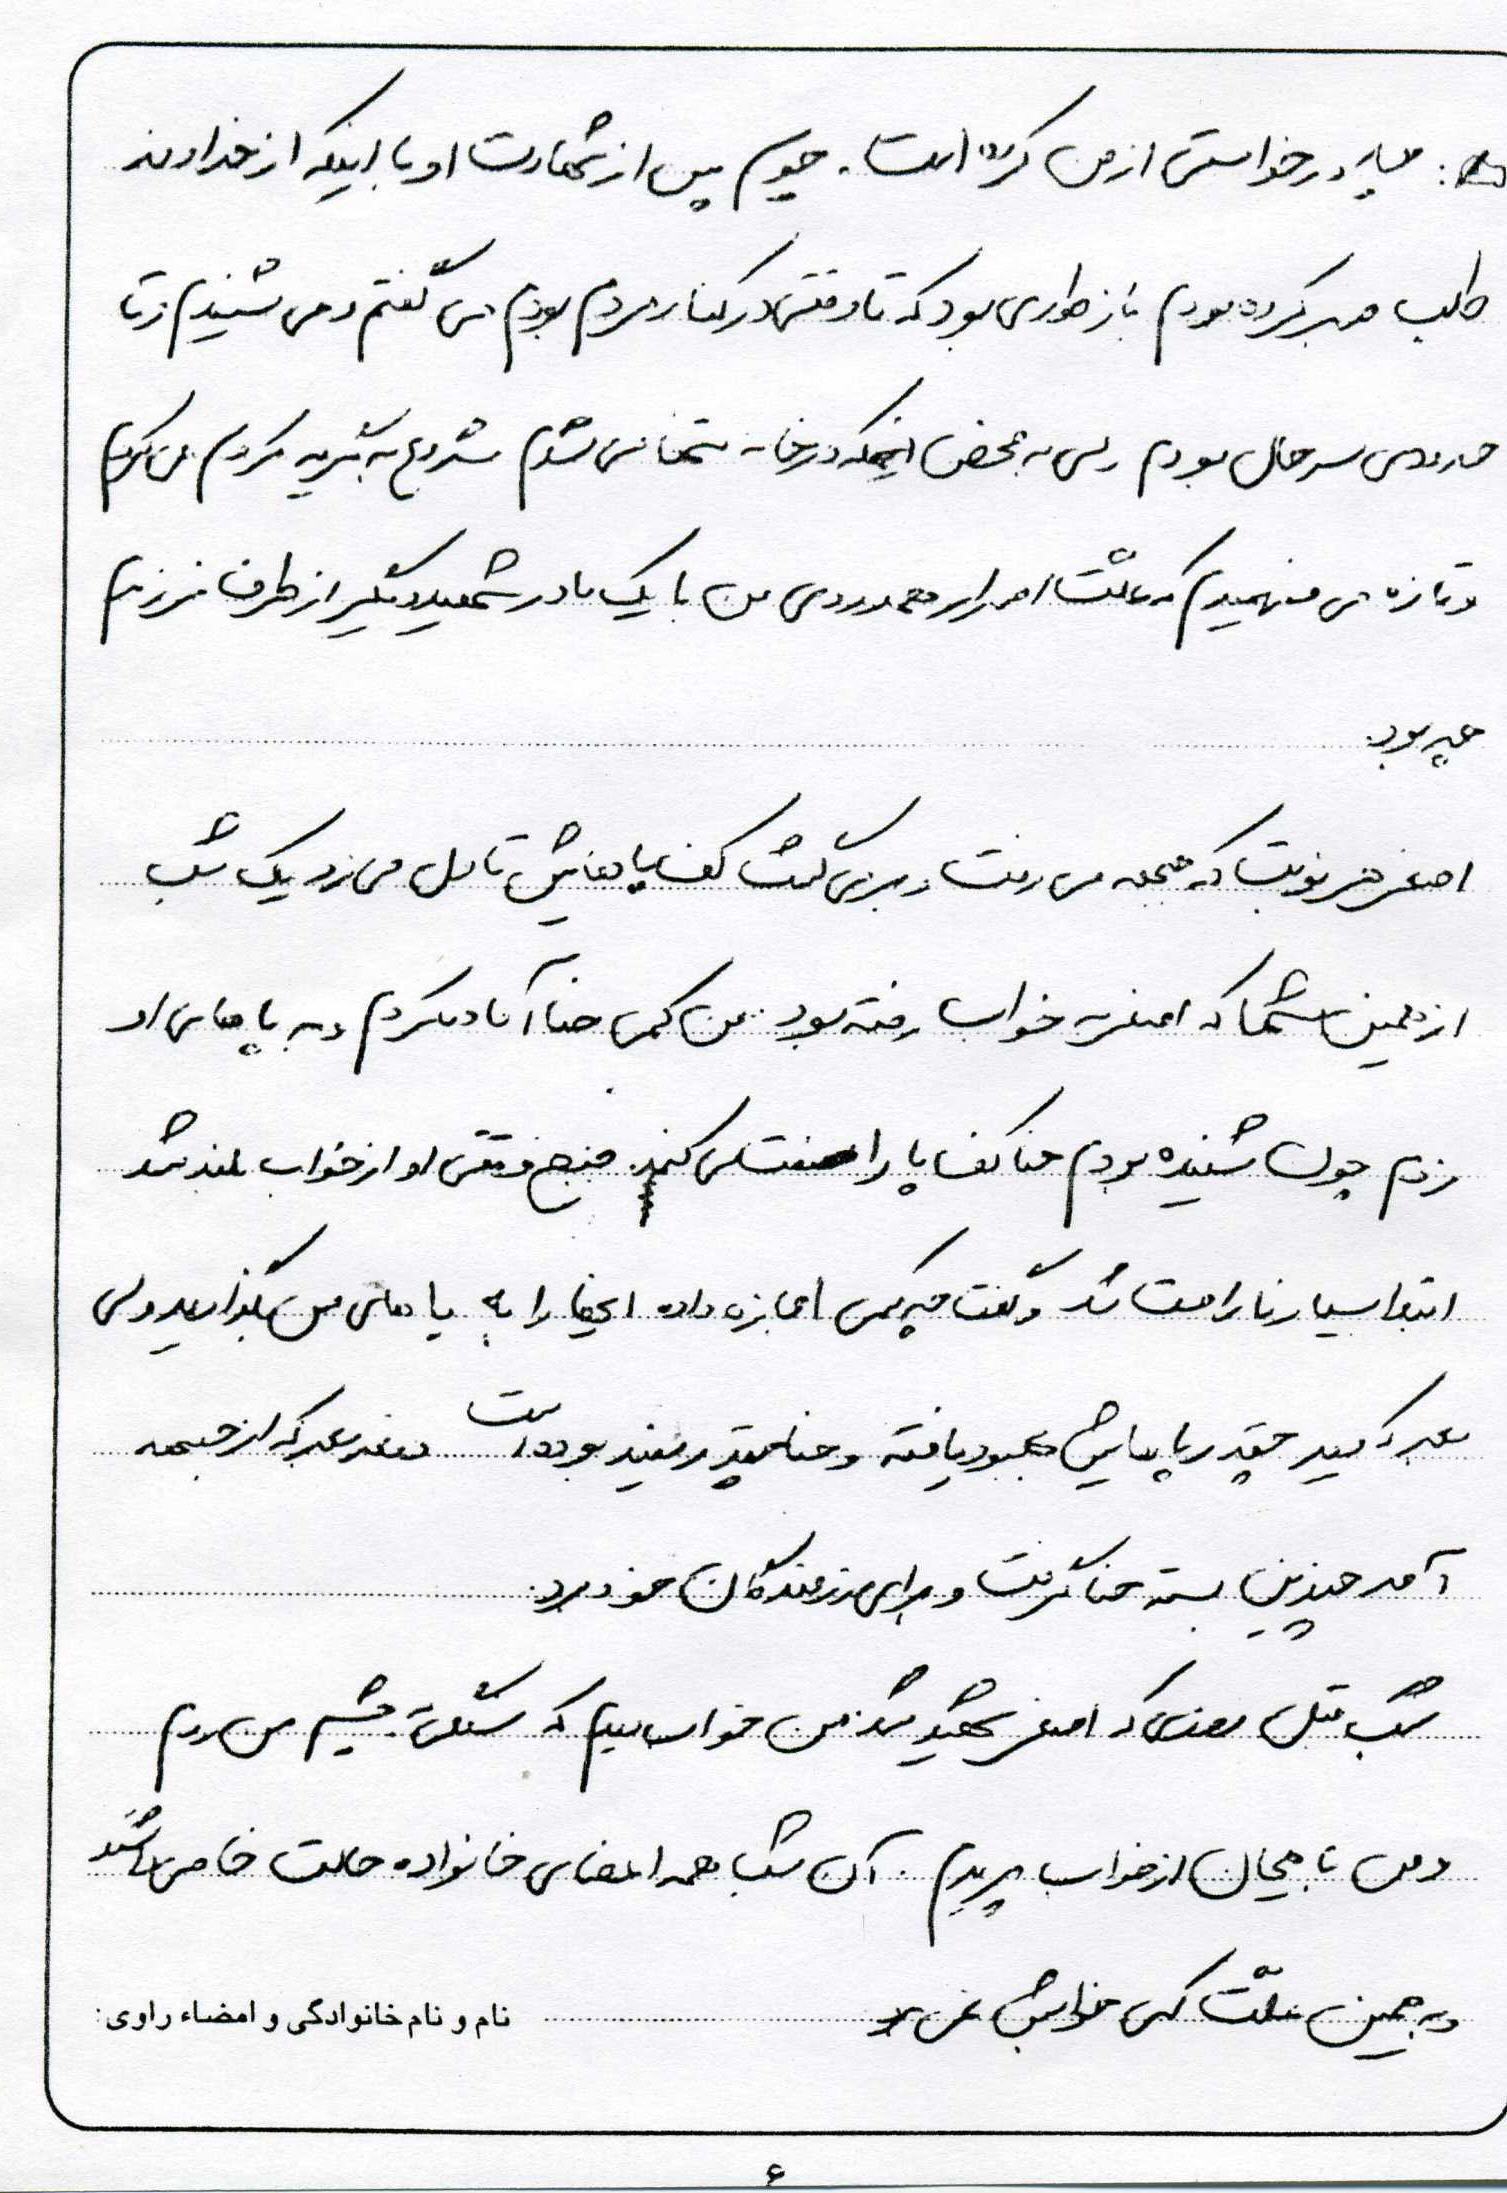 چه درخواستی از من کرده است. چون پس از شهادت او با اینکه از خداوند
طلب صبر کرده بودم باز طوری بود که تا وقتی در کنار مردم بودم می گفتم و می شنیدم و تا
حدودی سرحال بودم ولی به محض اینکه در خانه تنها می شدم شروع به گریه کردن می کردم
و تازه می فهمیدم که علت اصرار همدردی من با یک مادر شهید دیگر از طرف فرزندم
چه بود.
اصغر هر نوبت که جبهه می رفت و برمی گشت کف پاهایش تاول می زد یک شب
از همین شبها که اصغر به خواب رفته بود. من کمی حنا آماده کردم و به پاهای او
زدم چون شنیده بودم حنا کف پا را سفت می کند. صبح وقتی او از خواب بلند شد
ابتدا بسیار ناراحت شد و گفت چه کسی اجازه داده اینها را به پاهای من بگذارید ولی
بعد که دید چقدر پاهایش بهبود یافته و حنا چقدر مفید بوده است دفعه بعد که از جبهه
آمد چندین بسته حنا گرفت و برای رزمندگان خود برد.
شب قبل روزی که اصغر شهید شد من خواب دیدم که سنگی به چشم من زدم
و من با هیجان از خواب پریدم. آن شب همه اعضای خانواده حالت خاصی داشتند
و به همین علت کسی خوابش نمی برد
نام و نام خانوادگی و امضاء راوی:
۶